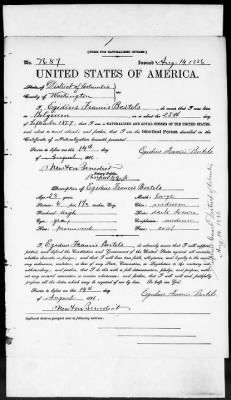 [FORM FOR NATURALIZED CITIZEN.]
No. 7687 Issued Aug 14 1886
UNITED STATES OF AMERICA.
State of District of Columbia
County of Washington
I, Egidius Francis Bertels, do swear that I was born
in Belgium on the 28th day
of September 1857; that I am a NATURALIZED AND LOYAL CITIZEN OF THE UNITED STATES,
and about to travel abroad; and further, that I am the Identical Person described in the
Certificate of Naturalization herewith presented.
Sworn to before me this 14th day
of August 1886. Egidius Francis Bertels
Newton Benedict
Notary Public.
Description of Egidius Francis Bertels
Age: Mouth: large
Stature: Chin: medium
Forehead: high Hair: dark brown
Eyes: gray Complexion: medium
Nose: Face: oval
I, Egidius Francis Bertels, do solemnly swear that I will support,
protect, and defend the Constitution and Government of the United States against all enemies,
whether domestic or foreign; and that I will bear true faith, allegiance, and loyalty to the same,
any ordinance, resolution, or law of any State, Convention, or Legislature to the contrary notwithstanding;
and further, that I do this with a full determination, pledge, and purpose, without
any mental reservation or evasion whatsoever; and further, that I will well and faithfully
perform all the duties which may be required of me by law. So help me God.
Sworn to before me this 14th day
of August 1886. Egidius Francis Bertels
Newton Benedict
Applicant desires passport sent to